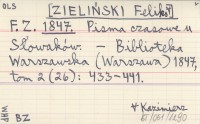 OLS
[ZIELIŃSKI Feliks]
F. Z. 1847. Pisma czasowe u
Słowaków. – Biblioteka
Warszawska (Warszawa) 1847,
tom 2 (26): 433–441.
Kazimierz
WHP BZ